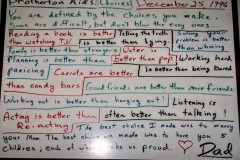 Brotherton Kids: Choices December 25, 1995
You are defined by the choices you make.
Some are difficult, but don't blow the easy ones.
Reading a book is better than watching T.V.
Telling the truth is better than lying
is better than whining
Water is better than pop
Planning is better than panicing
Working hard is better than being bored
Carrots are better than candy bars
Good friends are better than more friends
Working out is better than hanging out!
Listening is often better than talking!
Acting is better than Re-acting
The best choice I made was to marry your Mom. The best choice we made was to have you 5 children, each of whom make us proud. ♡ Dad